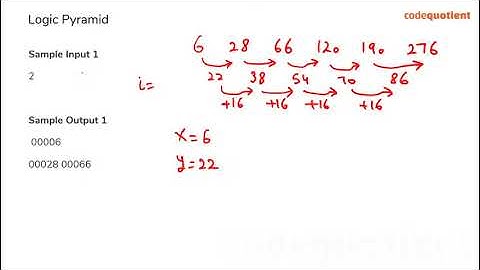 Logic Pyramid
codequotient
Sample Input 1
2
Sample Output 1
00006
00028 00066
6 28 66 120 190 276
22 38 54 70 86
i=
+16 +16 +16 +16
x=6
y=22